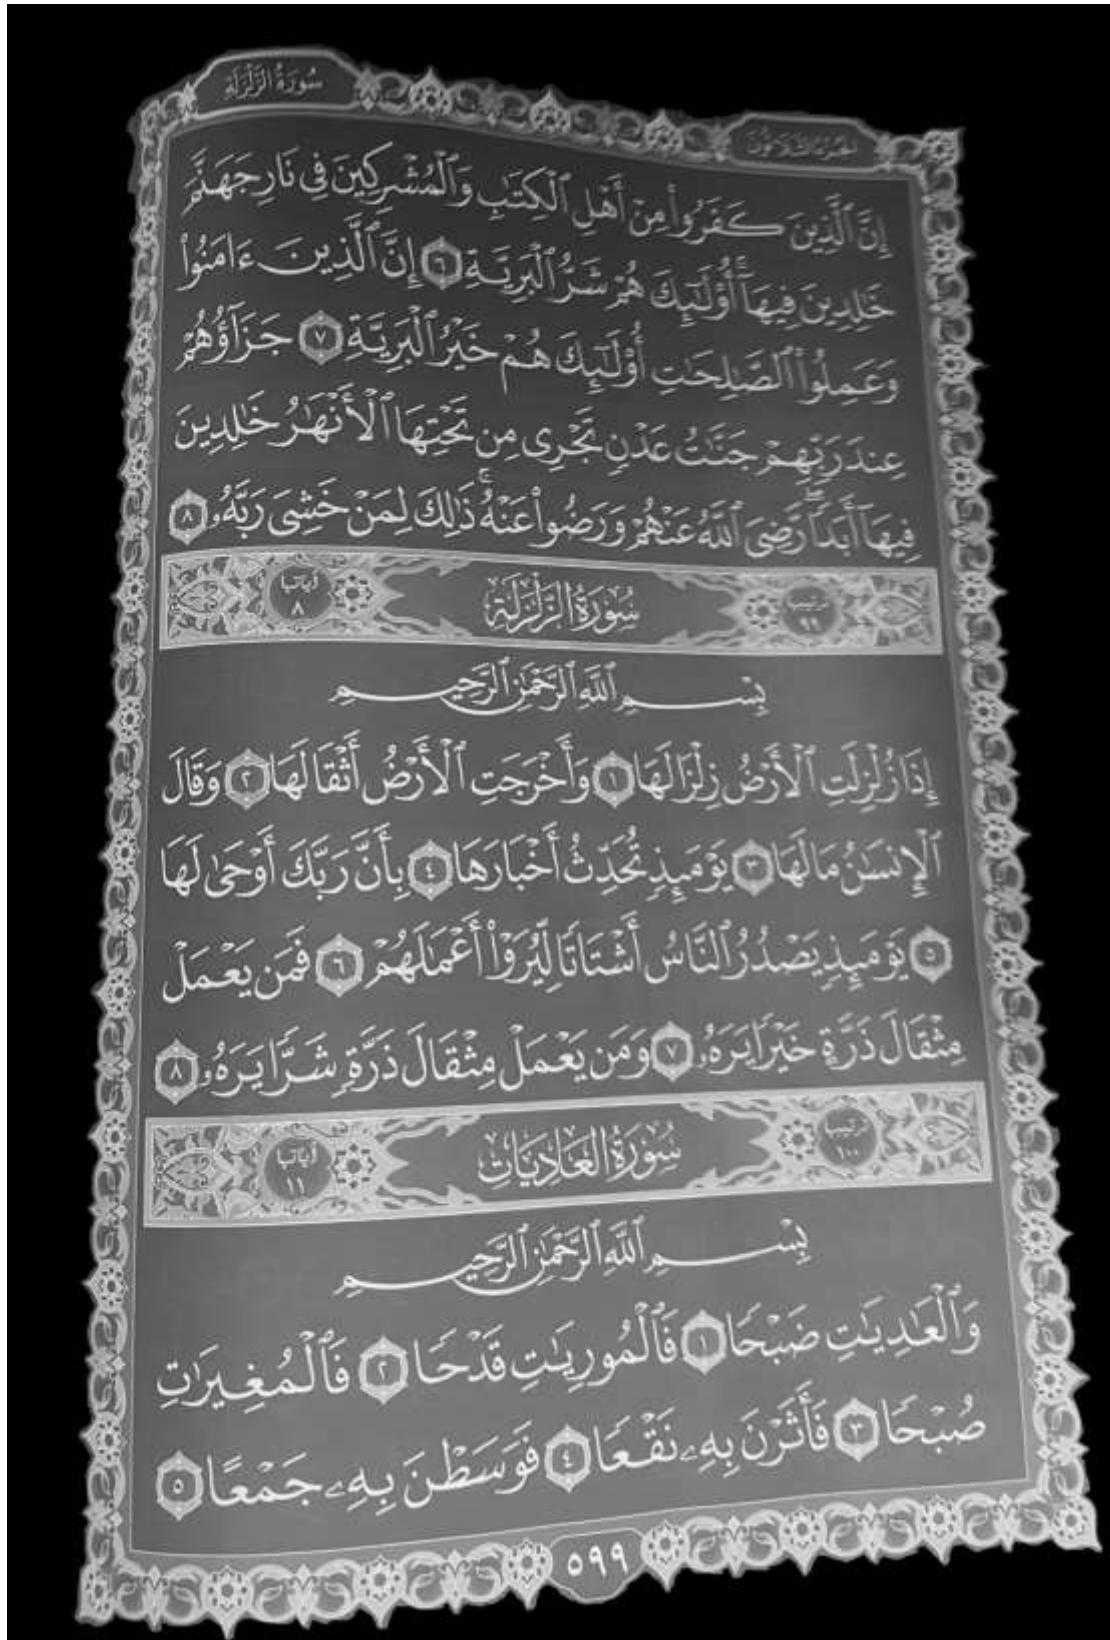 سُورَةُ الزَّلْزَلَةِ
الجزء الثلاثون
إِنَّ ٱلَّذِينَ كَفَرُوا۟ مِنْ أَهْلِ ٱلْكِتَٰبِ وَٱلْمُشْرِكِينَ فِى نَارِ جَهَنَّمَ
خَٰلِدِينَ فِيهَآ ۚ أُو۟لَٰٓئِكَ هُمْ شَرُّ ٱلْبَرِيَّةِ ٦ إِنَّ ٱلَّذِينَ ءَامَنُوا۟
وَعَمِلُوا۟ ٱلصَّٰلِحَٰتِ أُو۟لَٰٓئِكَ هُمْ خَيْرُ ٱلْبَرِيَّةِ ٧ جَزَآؤُهُمْ
عِندَ رَبِّهِمْ جَنَّٰتُ عَدْنٍ تَجْرِى مِن تَحْتِهَا ٱلْأَنْهَٰرُ خَٰلِدِينَ
فِيهَآ أَبَدًا ۖ رَّضِىَ ٱللَّهُ عَنْهُمْ وَرَضُوا۟ عَنْهُ ۚ ذَٰلِكَ لِمَنْ خَشِىَ رَبَّهُۥ ٨
ترتيبها ٩٩ سُورَةُ الزَّلْزَلَةِ آياتها ٨
بِسْمِ ٱللَّهِ ٱلرَّحْمَٰنِ ٱلرَّحِيمِ
إِذَا زُلْزِلَتِ ٱلْأَرْضُ زِلْزَالَهَا ١ وَأَخْرَجَتِ ٱلْأَرْضُ أَثْقَالَهَا ٢ وَقَالَ
ٱلْإِنسَٰنُ مَا لَهَا ٣ يَوْمَئِذٍ تُحَدِّثُ أَخْبَارَهَا ٤ بِأَنَّ رَبَّكَ أَوْحَىٰ لَهَا
٥ يَوْمَئِذٍ يَصْدُرُ ٱلنَّاسُ أَشْتَاتًا لِّيُرَوْا۟ أَعْمَٰلَهُمْ ٦ فَمَن يَعْمَلْ
مِثْقَالَ ذَرَّةٍ خَيْرًا يَرَهُۥ ٧ وَمَن يَعْمَلْ مِثْقَالَ ذَرَّةٍ شَرًّا يَرَهُۥ ٨
ترتيبها ١٠٠ سُورَةُ العَادِيَاتِ آياتها ١١
بِسْمِ ٱللَّهِ ٱلرَّحْمَٰنِ ٱلرَّحِيمِ
وَٱلْعَٰدِيَٰتِ ضَبْحًا ١ فَٱلْمُورِيَٰتِ قَدْحًا ٢ فَٱلْمُغِيرَٰتِ
صُبْحًا ٣ فَأَثَرْنَ بِهِۦ نَقْعًا ٤ فَوَسَطْنَ بِهِۦ جَمْعًا ٥
٥٩٩